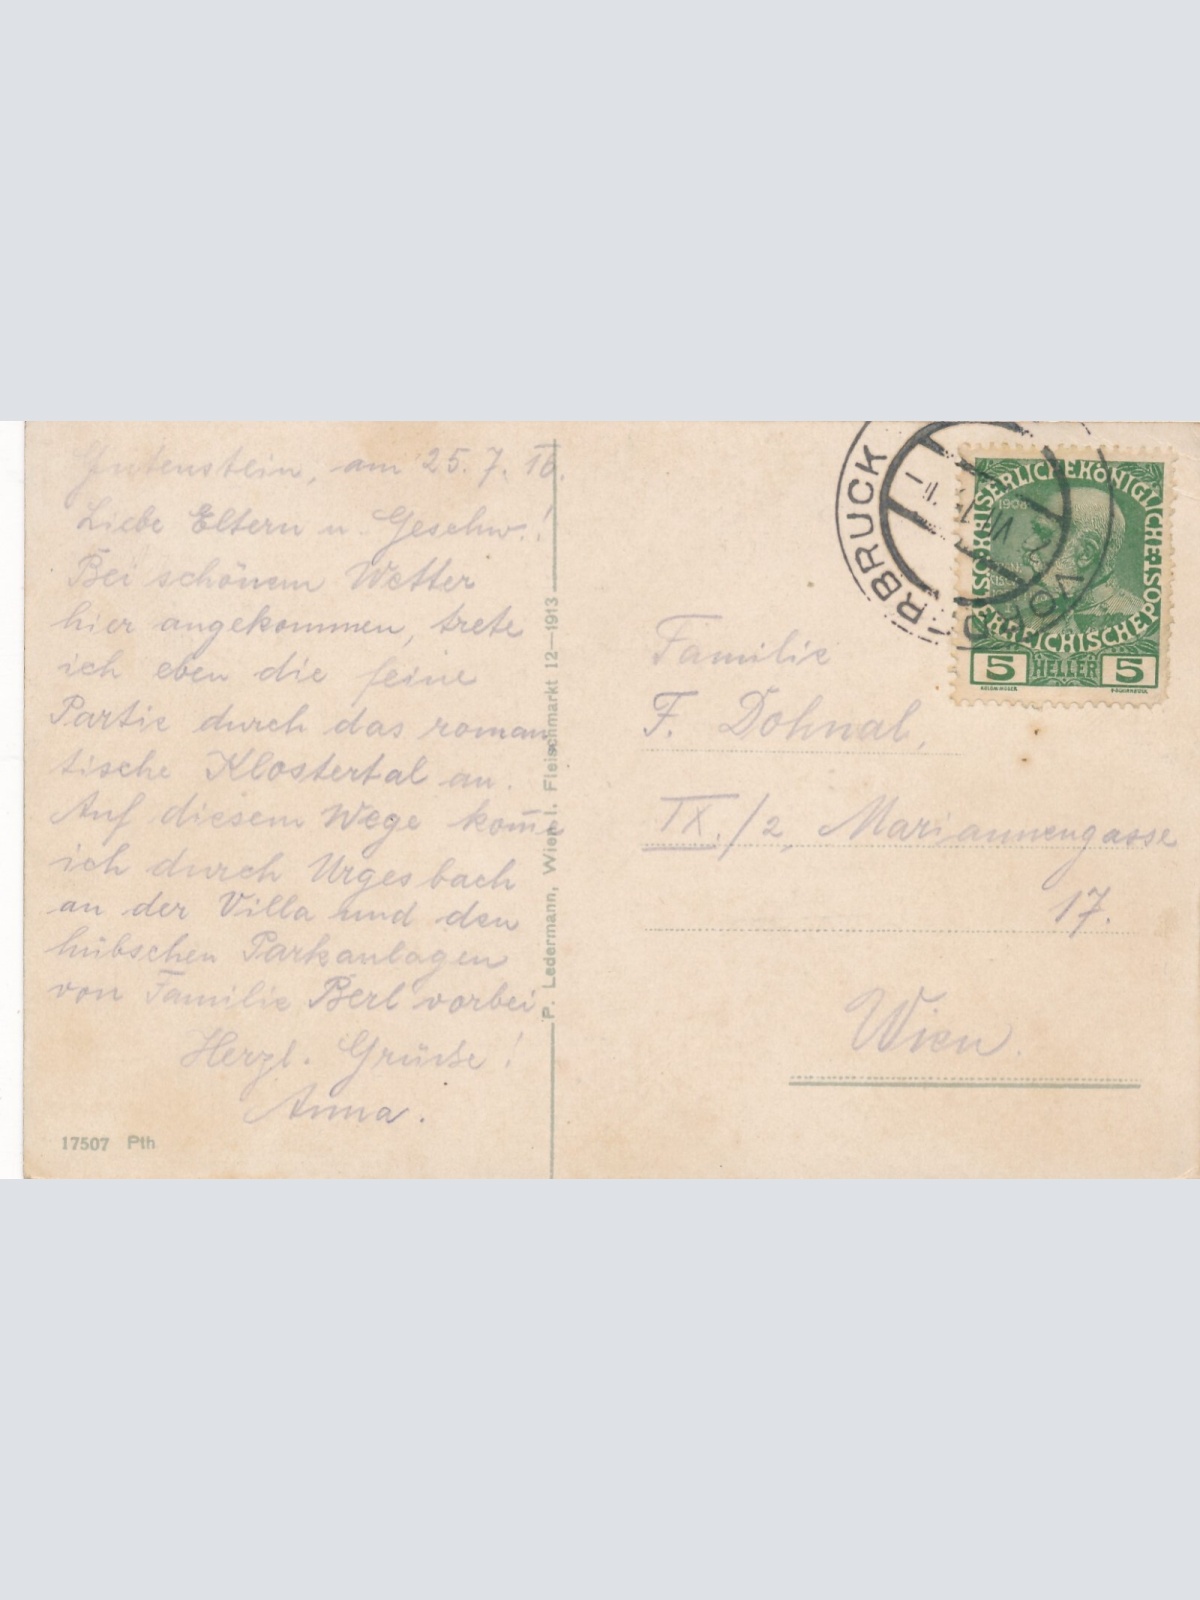 Gutenstein, am 25. 7. 16.
Liebe Eltern u. Geschw.!
Bei schönem Wetter
hier angekommen, trete
ich eben die feine
Partie durch das roman
tische Klostertal an.
Auf diesem Wege kom̅e
ich durch Urgesbach
an der Villa und den
hübschen Parkanlagen
von Familie Berl vorbei
Herzl. Grüße!
Anna.
17507 Pth
P. Ledermann, Wien I. Fleischmarkt 12—1913
RBRUCK
KAISERLICHE KÖNIGLICHE ÖSTERREICHISCHE
1908
5 HELLER 5
Familie
F. Dohnal,
IX./2, Mariannengasse
17.
Wien.